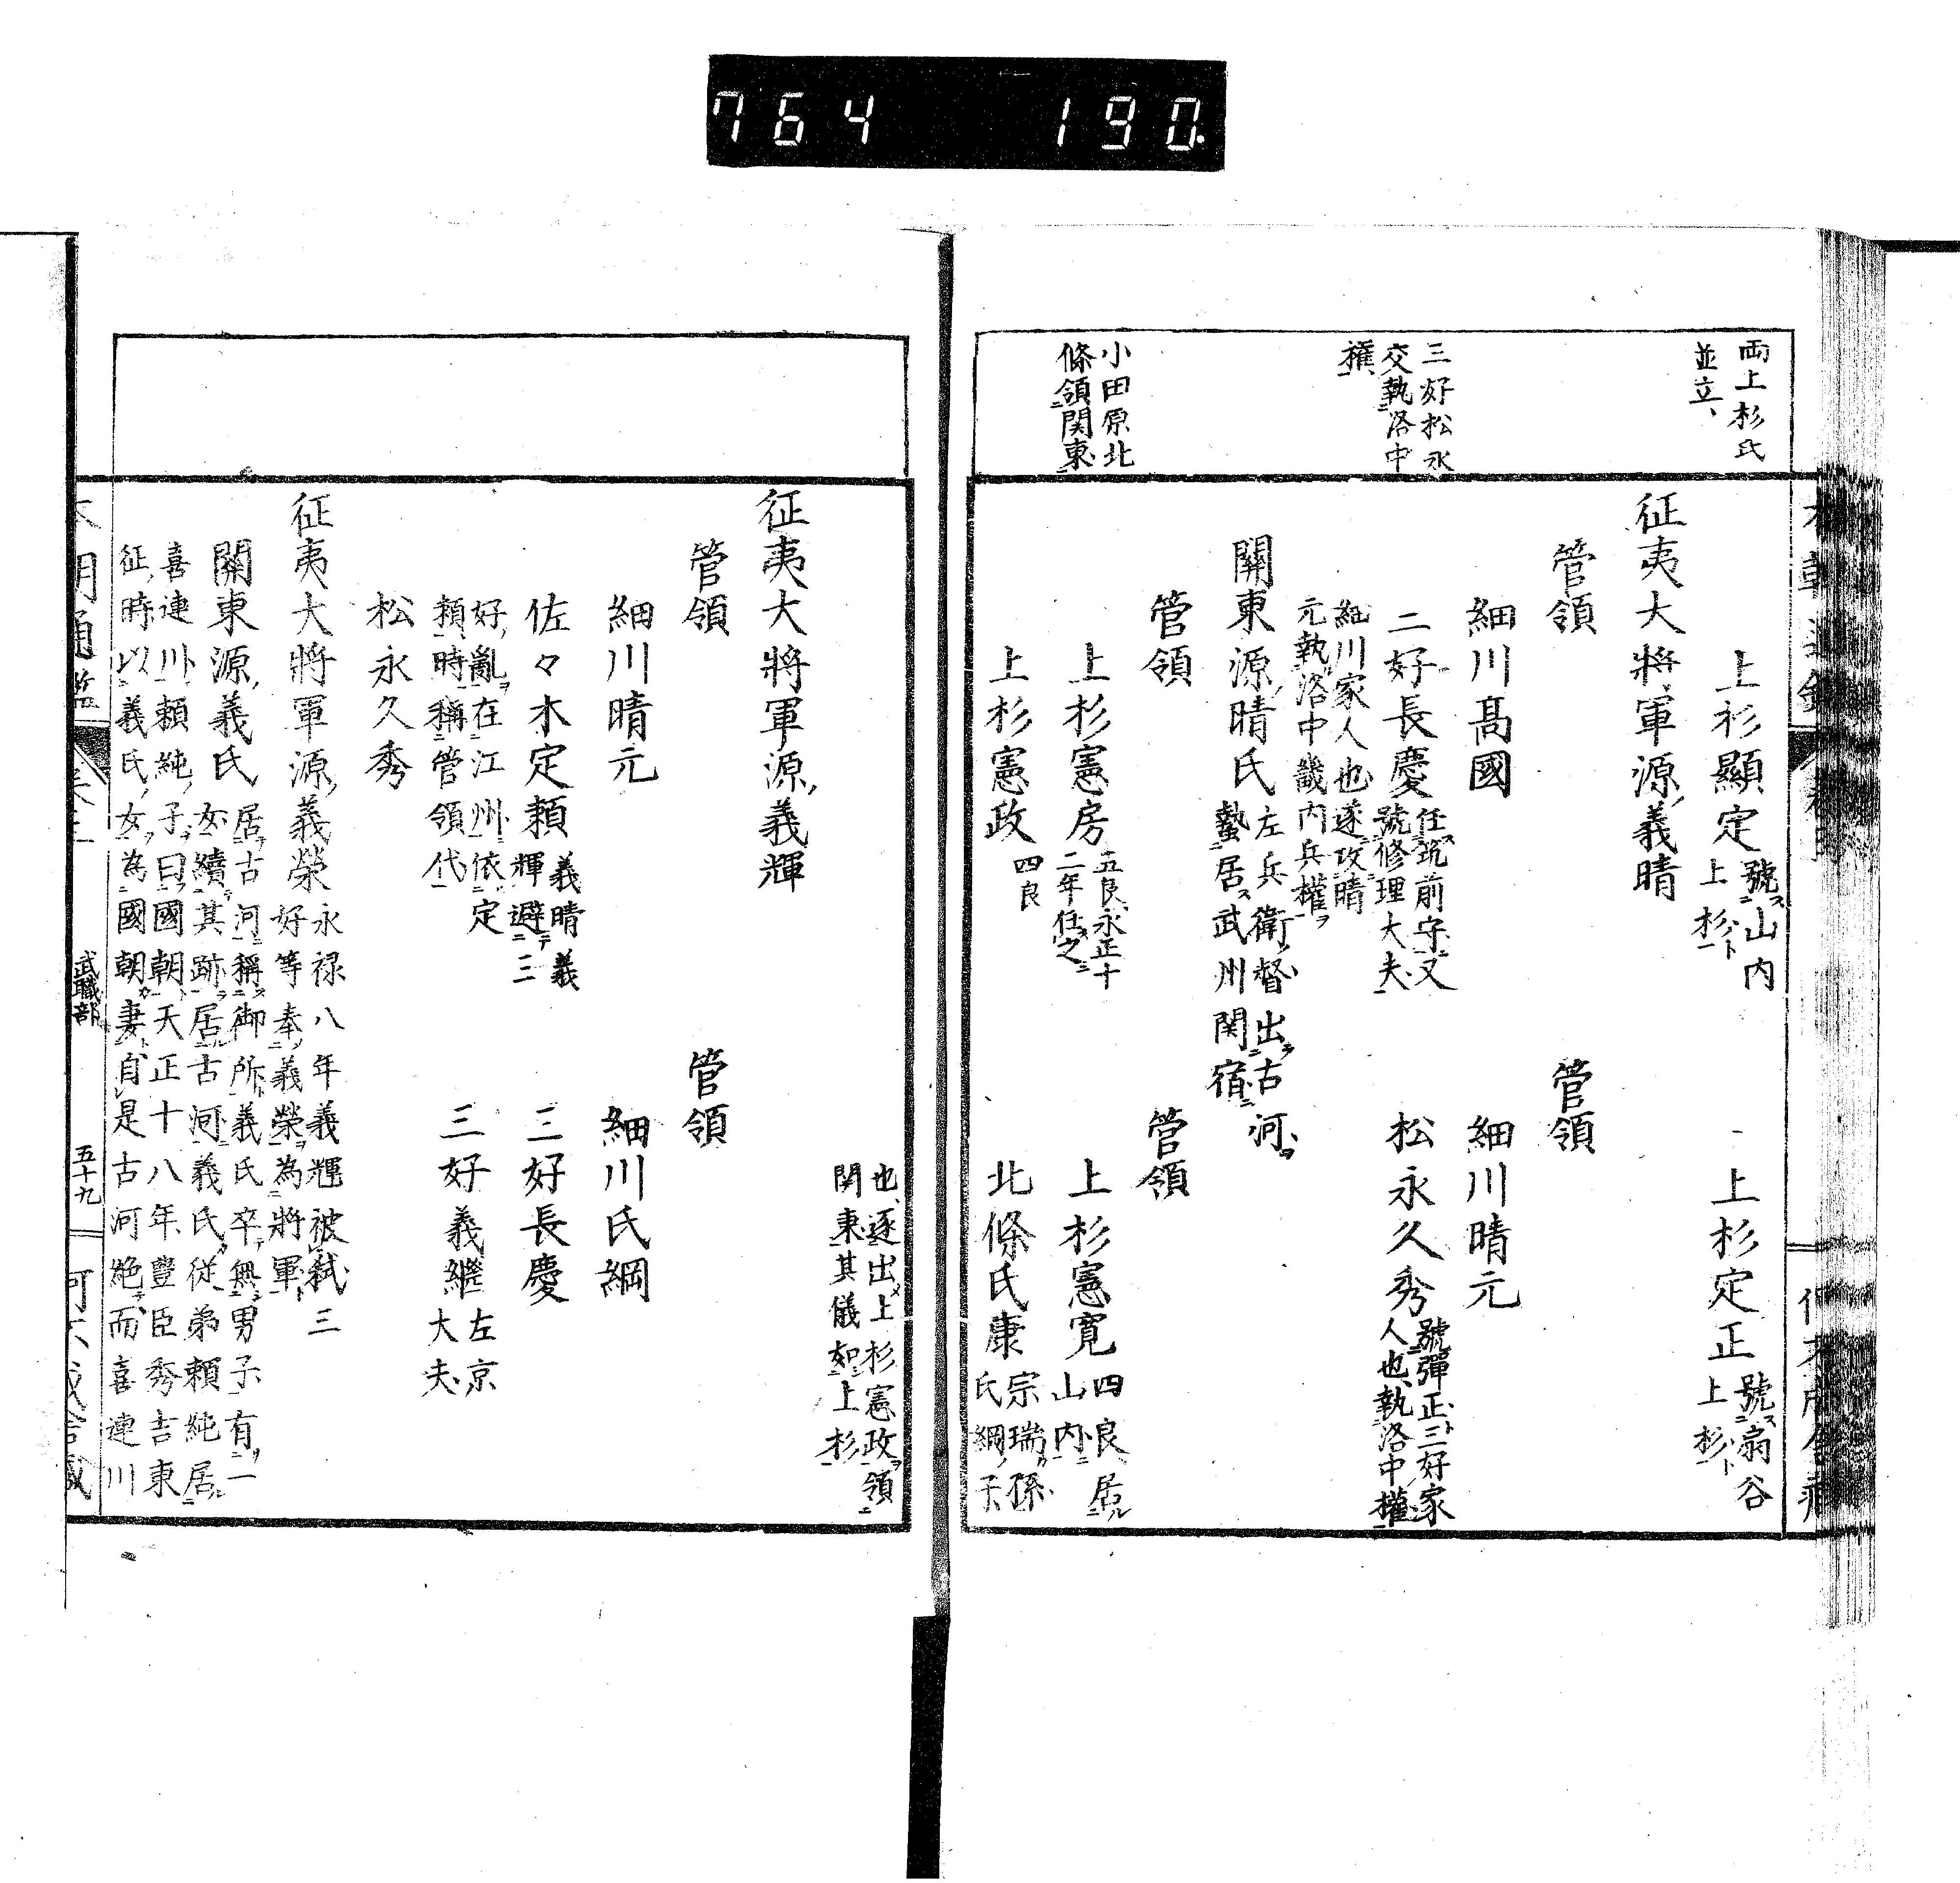 764 190
両上杉氏
並立、
三好松永
交執洛中
權
小田原北
條領関東
上杉顯定 號山内
上杉
上杉定正 號扇谷
上杉
征夷大將軍源義晴
管領
管領
細川髙國
細川晴元
三好長慶 任筑前守又
號修理大夫
細川家人也遂攻晴
元執洛中畿内兵權
松永久秀 號彈正三好家
人也執洛中權
關東源晴氏 左兵衛督出古河
蟄居武州関宿
管領
管領
上杉憲房 五良永正十
二年任之
上杉憲寛 四良居
山内
上杉憲政 四良
北條氏康 宗瑞孫
氏綱子
也、逐出上杉憲政領
関東其儀如上杉
征夷大將軍源義輝
管領
管領
細川晴元
細川氏綱
佐々木定頼 義晴義
輝避三
好亂在江州依定
頼時稱管領代
三好長慶
三好義継 左京
大夫
松永久秀
征夷大將軍源義榮 永禄八年義輝被弑三
好等奉義榮為將軍
關東源義氏 居古河稱御所義氏卒無男子有一
女續其跡居古河義氏従弟頼純居
喜連川頼純子曰國朝天正十八年豊臣秀吉東
征時以義氏女為國朝妻自是古河絶而喜連川
武職部
五十九